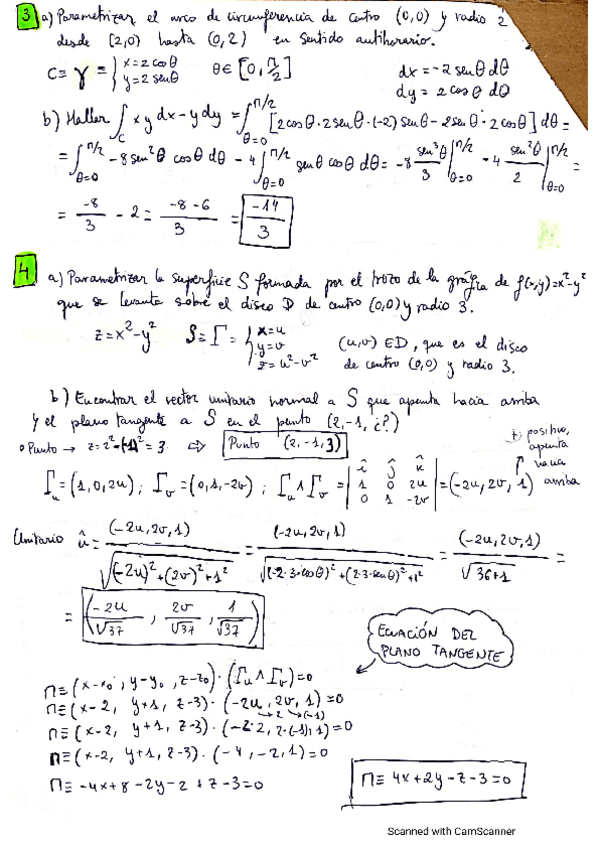 3 a) Parametrizar el arco de circunferencia de centro (0,0) y radio 2
desde (2,0) hasta (0,2) en sentido antihorario.
C ≡ γ = { x = 2 cos θ   θ ∈ [0, π/2]   dx = -2 sen θ dθ
y = 2 sen θ   dy = 2 cos θ dθ
b) Hallar ∫_C xy dx - y dy = ∫_{θ=0}^{π/2} [2 cos θ · 2 sen θ · (-2) sen θ - 2 sen θ · 2 cos θ] dθ =
= ∫_{θ=0}^{π/2} -8 sen² θ cos θ dθ - 4 ∫_{θ=0}^{π/2} sen θ cos θ dθ = -8 sen³θ/3 |_{θ=0}^{π/2} - 4 sen²θ/2 |_{θ=0}^{π/2} =
= -8/3 - 2 = (-8-6)/3 = -14/3
4 a) Parametrizar la superficie S formada por el trozo de la gráfica de f(x,y)=x²-y²
que se levanta sobre el disco D de centro (0,0) y radio 3.
z = x² - y²   S ≡ Γ = { x = u   (u,v) ∈ D, que es el disco
y = v   de centro (0,0) y radio 3.
z = u² - v²
b) Encontrar el vector unitario normal a S que apunta hacia arriba
y el plano tangente a S en el punto (2,-1,¿?)
Punto → z = 2² - (-1)² = 3 ⇒ Punto (2,-1,3)
positivo,
apunta
hacia
arriba
Γu = (1,0,2u) ; Γv = (0,1,-2v) ; Γu ∧ Γv = | î ĵ k̂ ; 1 0 2u ; 0 1 -2v | = (-2u, 2v, 1)
Unitario û = (-2u,2v,1)/√((-2u)²+(2v)²+1²) = (-2u,2v,1)/√((-2·3·cosθ)²+(2·3·senθ)²+1²) = (-2u,2v,1)/√(36+1) =
= (-2u/√37 , 2v/√37 , 1/√37)
ECUACIÓN DEL
PLANO TANGENTE
Π ≡ (x-x₀, y-y₀, z-z₀) · (Γu ∧ Γv) = 0
Π ≡ (x-2, y+1, z-3) · (-2u, 2v, 1) = 0
→ 2 → (-1)
Π ≡ (x-2, y+1, z-3) · (-2·2, 2·(-1), 1) = 0
Π ≡ (x-2, y+1, z-3) · (-4, -2, 1) = 0
Π ≡ -4x + 8 - 2y - 2 + z - 3 = 0   Π ≡ 4x + 2y - z - 3 = 0
Scanned with CamScanner